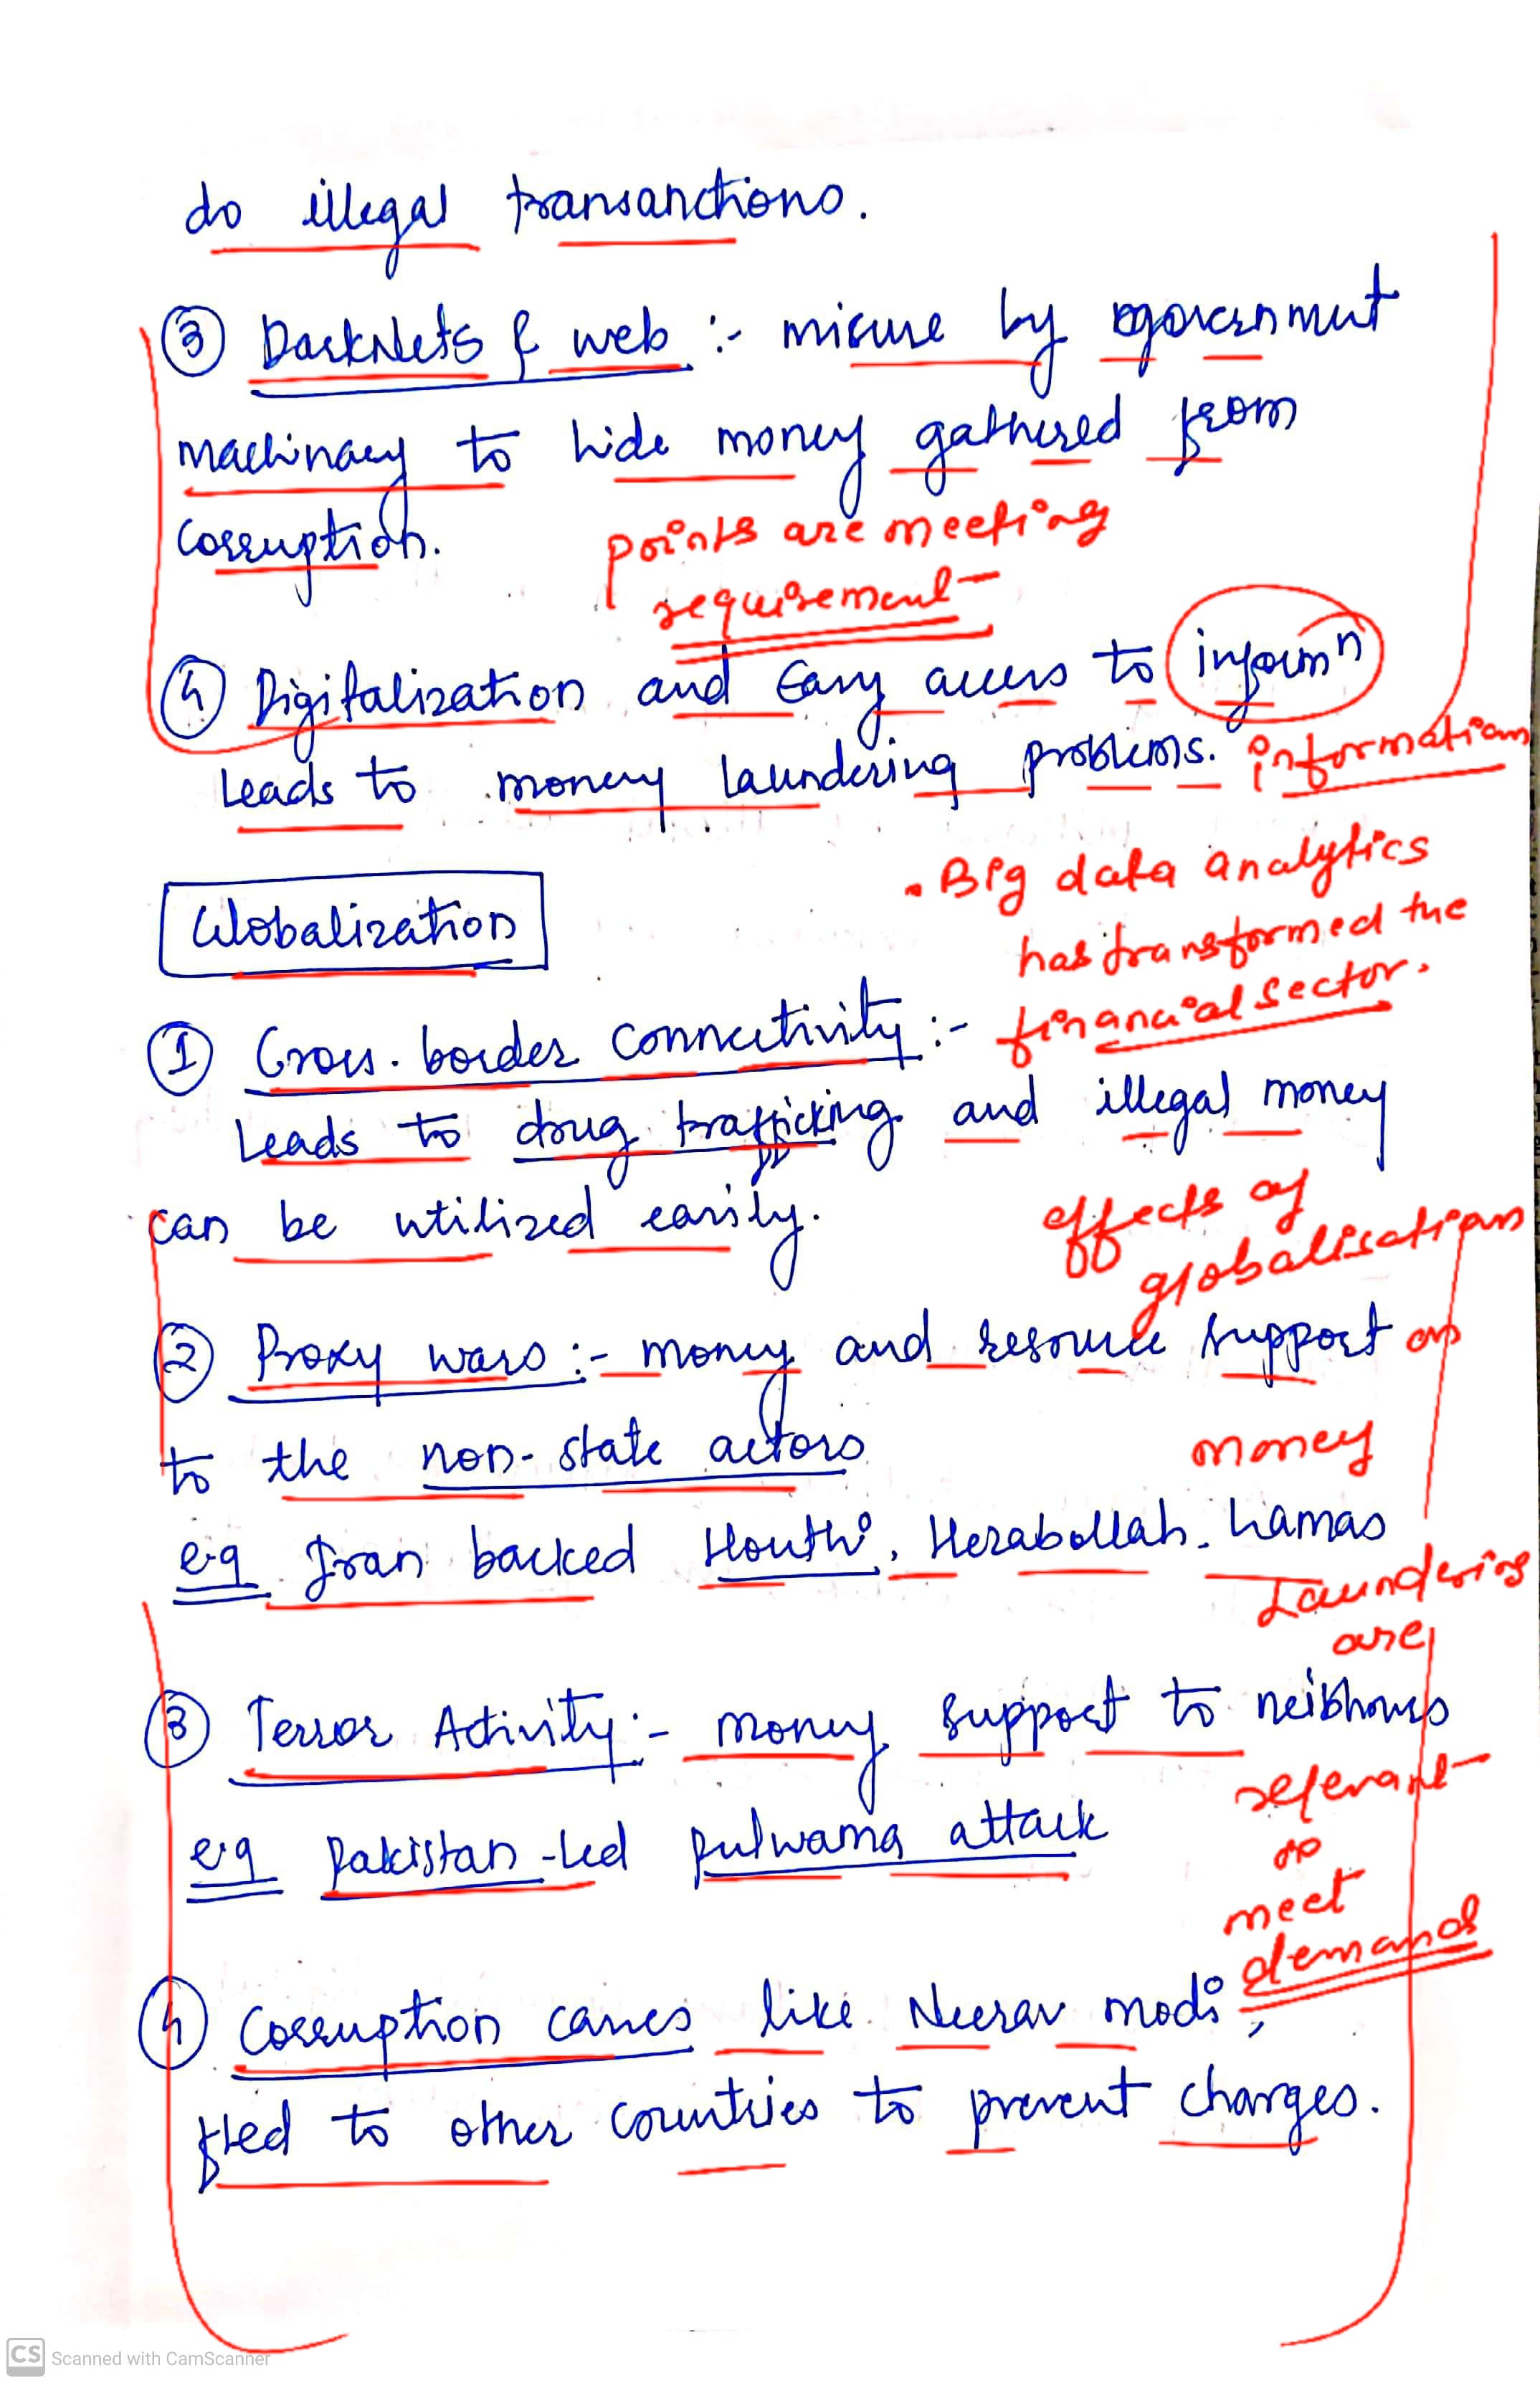 do illegal transanctions.
③ DarkNets & web :- misuse by government
machinary to hide money gathered from
corruption.
points are meeting
requirement
④ Digitalization and Easy access to informⁿ
leads to money laundering problems.
information
• Big data analytics
has transformed the
financial sector.
Globalization
① Cross-border connectivity :-
Leads to drug trafficking and illegal money
can be utilized easily.
effects of
globalisation
② Proxy wars :- money and resource support
on
to the non-state actors
money
e.g Iran backed Houthi, Hezabollah, hamas
Laundering
are
③ Terror Activity :- money support to neibhours
relevant
e.g Pakistan-led pulwama attack
meet
demand
④ Corruption cases like Neerav modi,
fled to other countries to prevent charges.
CS Scanned with CamScanner